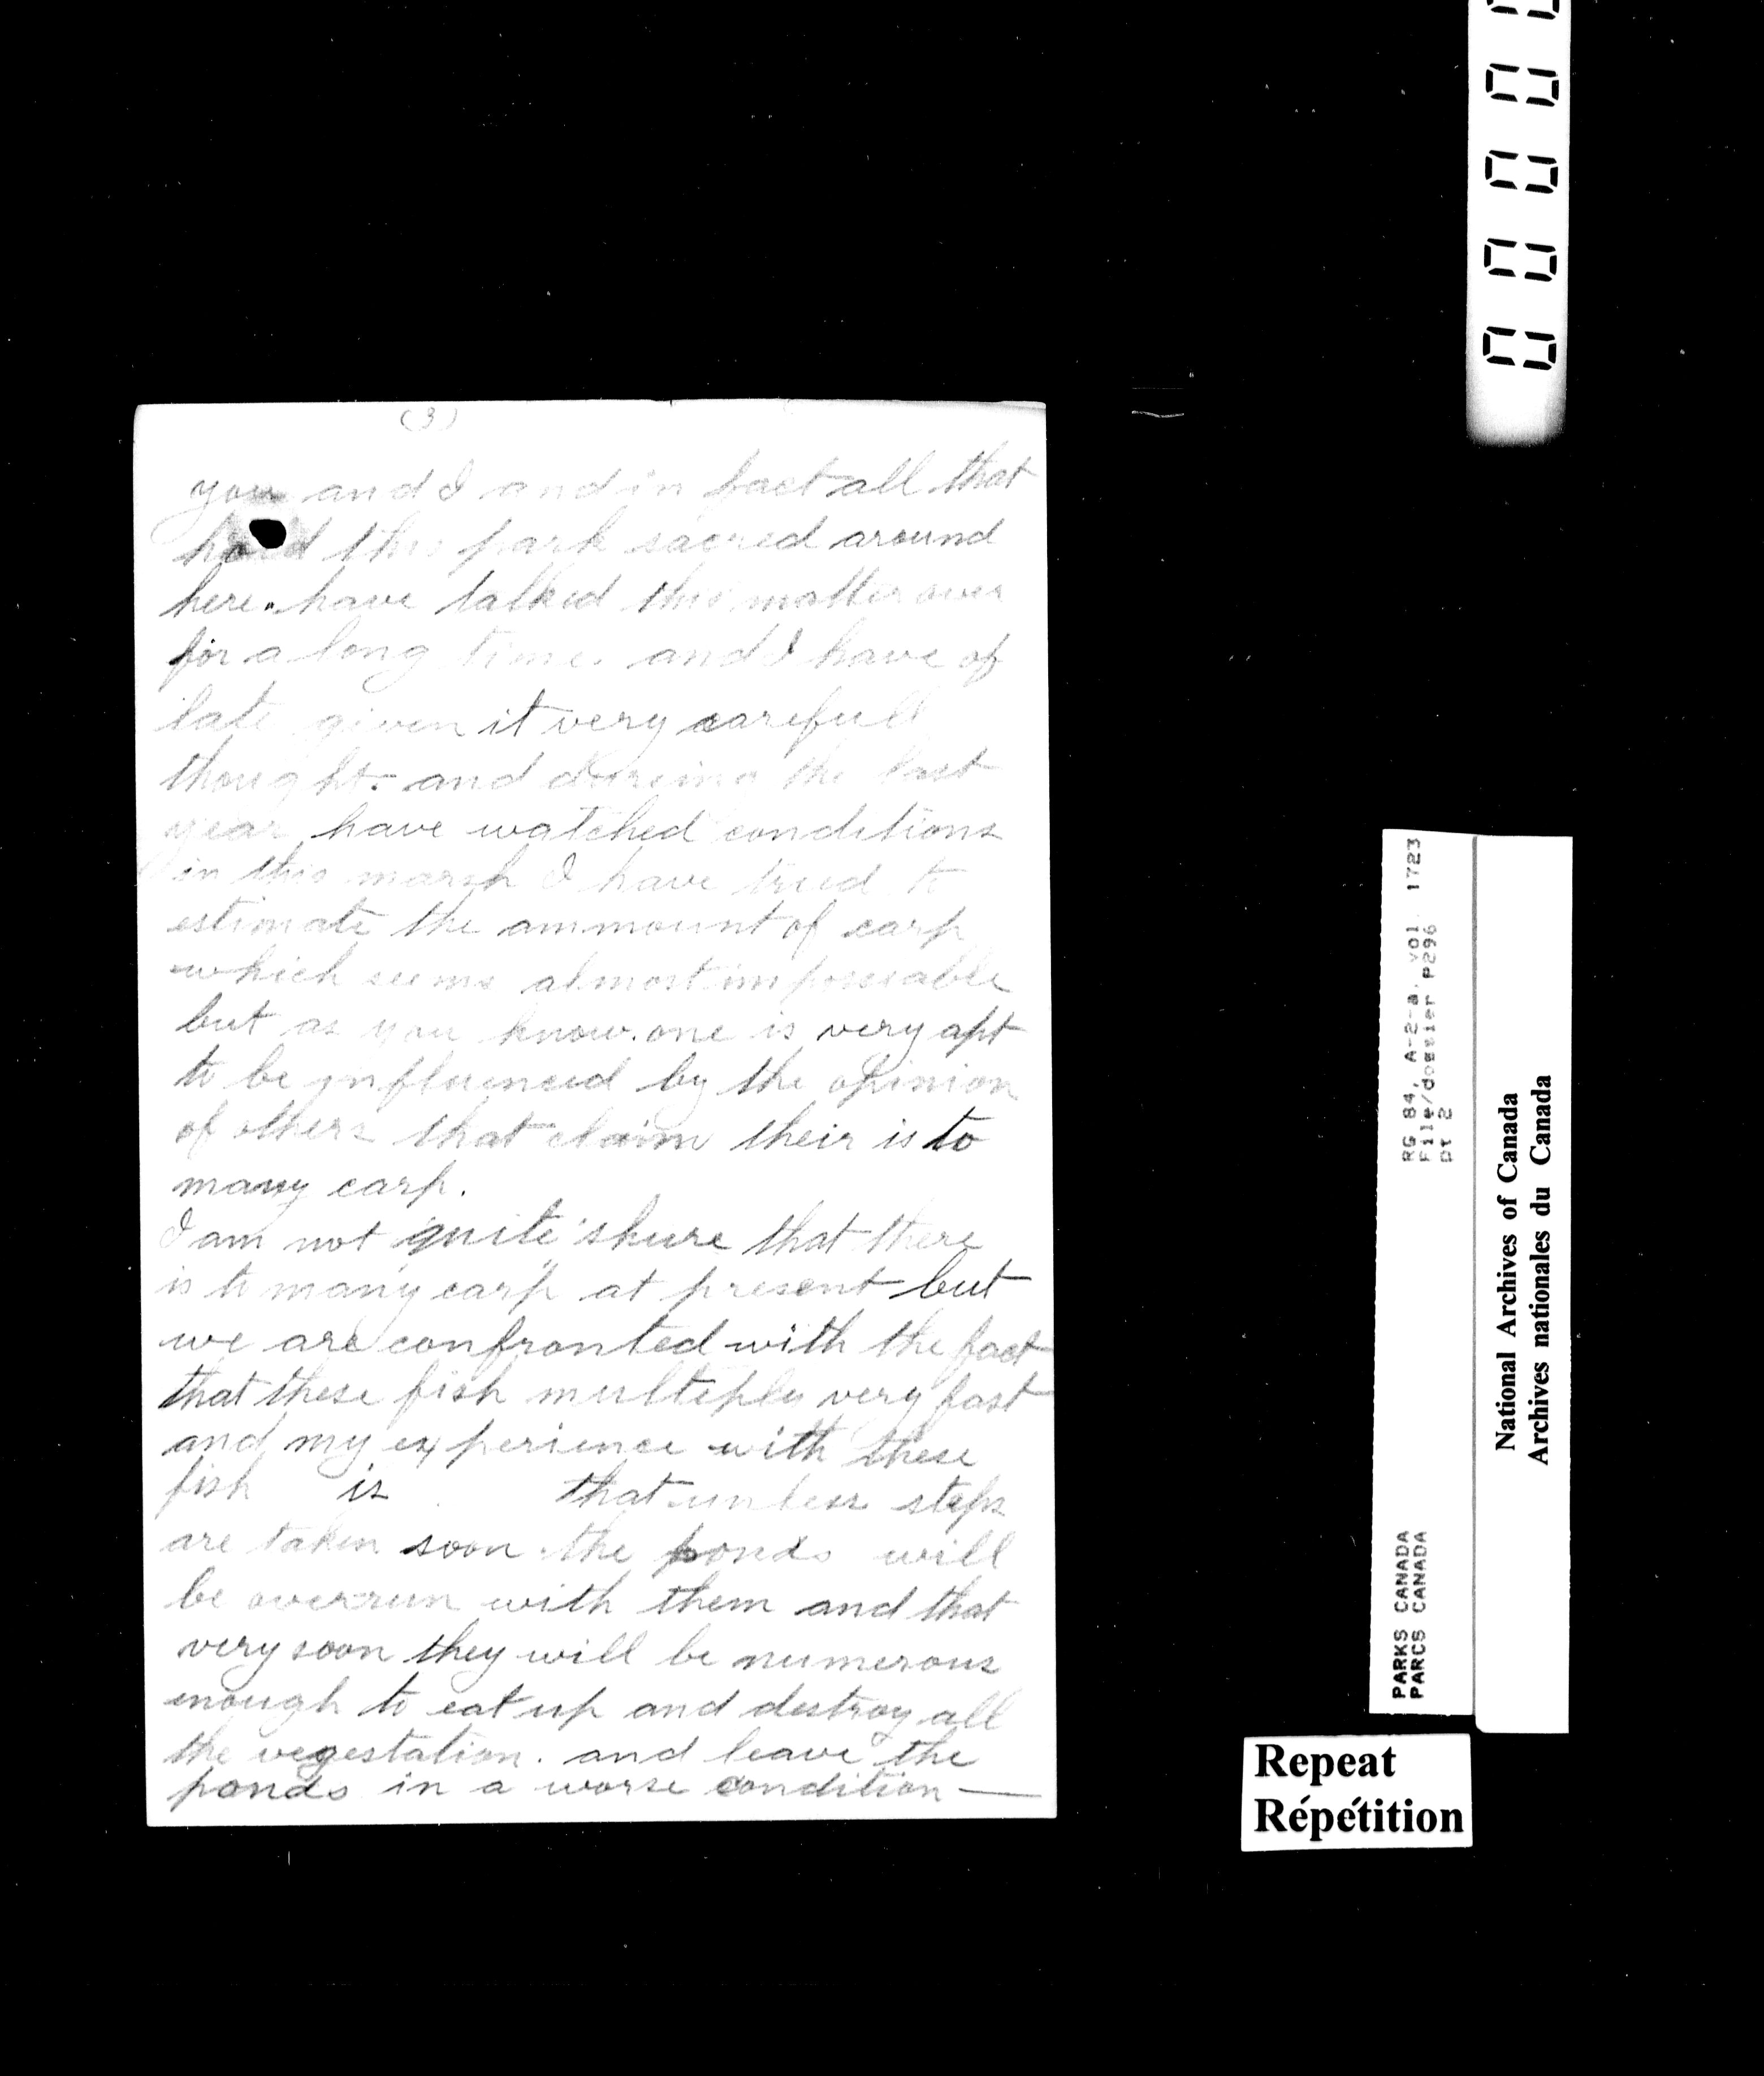 (3)
you and I and in fact all that
hold this park sacred around
here. have talked this matter over
for a long time. and I have of
late given it very carefull
thought. and dureing the last
year have watched conditions
in this marsh I have tried to
estimate the ammount of carp
which seems almost impossable
but as you know. one is very apt
to be influenced by the opinion
of others that claim their is to
many carp.
I am not quite shure that there
is to many carp at present but
we are confronted with the fact
that these fish multeply very fast
and my experience with these
fish is that unless steps
are taken soon the ponds will
be overrun with them and that
very soon they will be numerous
enough to eat up and destroy all
the vegestation. and leave the
ponds in a worse condition —
RG 84, A-2-a, vol. 1723
File/dossier P296
pt 2
PARKS CANADA
PARCS CANADA
National Archives of Canada
Archives nationales du Canada
Repeat
Répétition